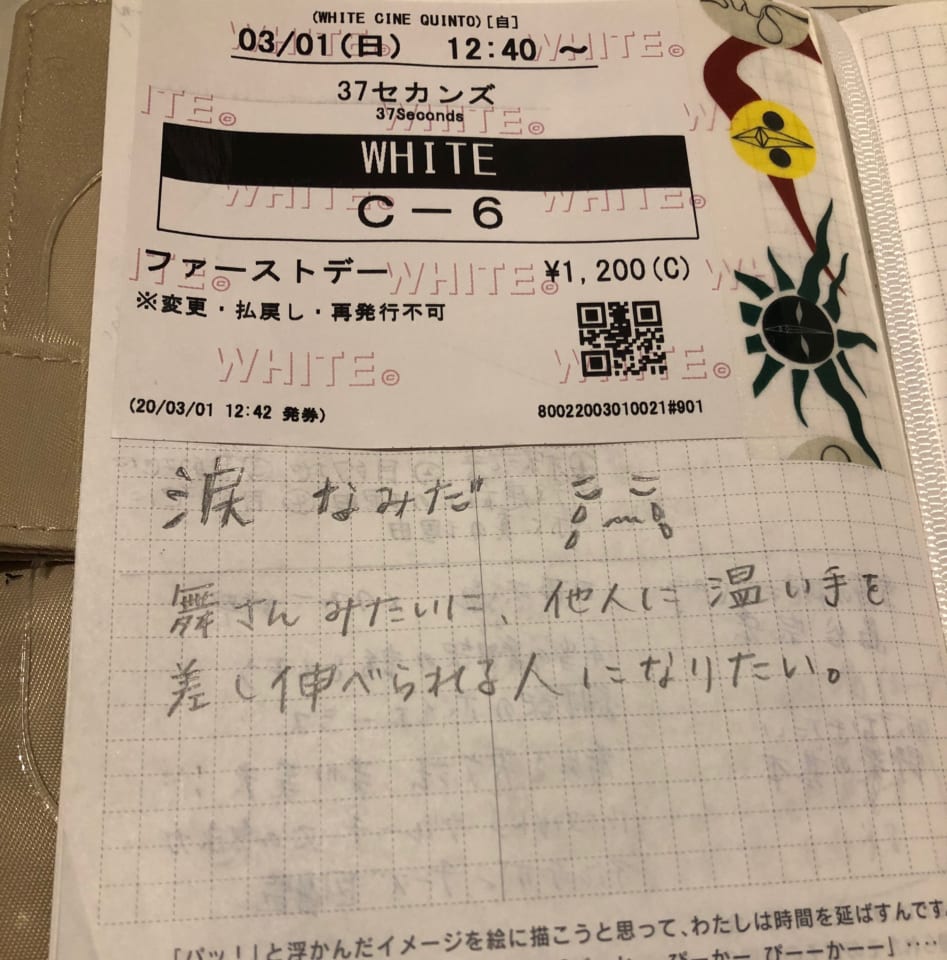 (WHITE CINE QUINTO)[自]
03/01(日) 12:40 ～
37セカンズ
37Seconds
WHITE
C－6
ファーストデー ¥1,200(C)
※変更・払戻し・再発行不可
WHITE©
(20/03/01 12:42 発券) 80022003010021#901
涙 なみだ
舞さんみたいに、他人に温い手を
差し伸べられる人になりたい。
「パッ！」と浮かんだイメージを絵に描こうと思って、わたしは時間を延ばすんです。
ぴーかー ぴーーかーー」‥‥